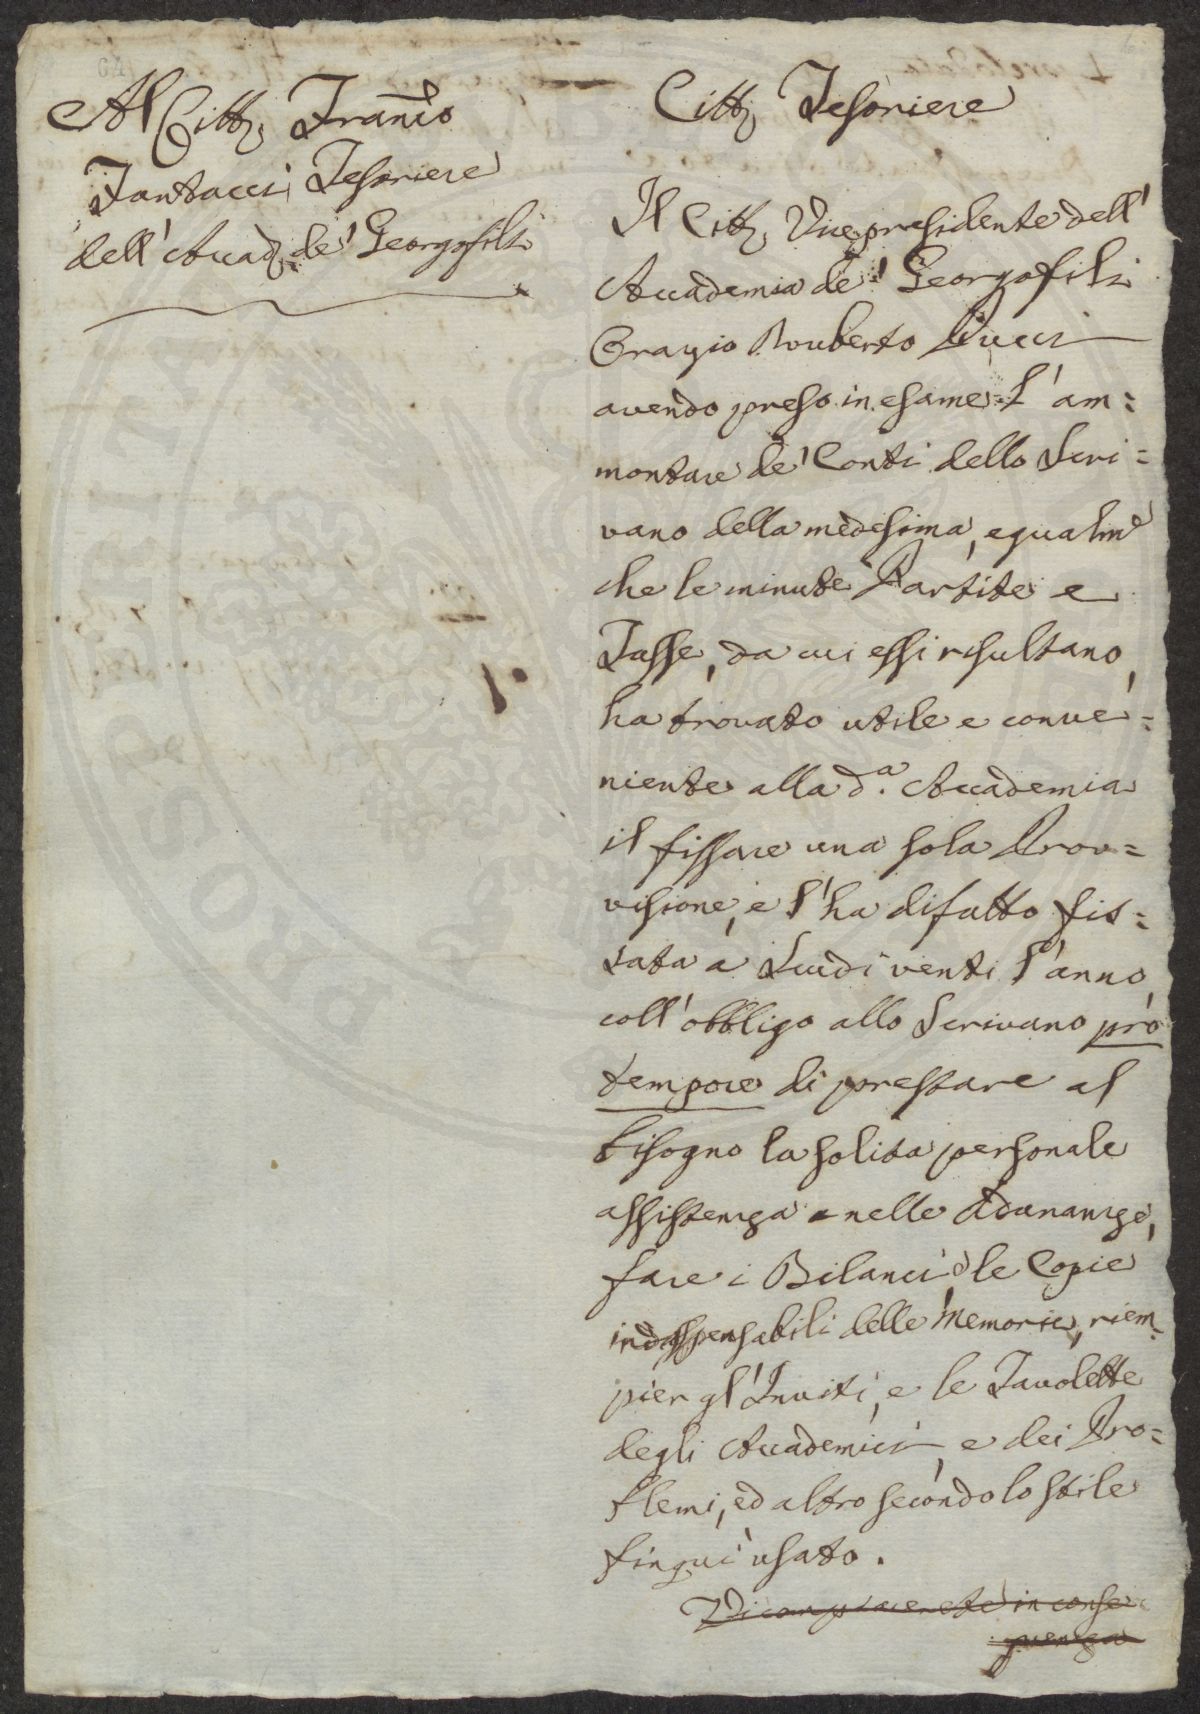 Al Citt. Franc.o
Fantacci Tesoriere
dell' Accad. de' Georgofili
Citt. Tesoriere
Il Citt. Vicepresidente dell'
Accademia de' Georgofili
Orazio Ruberto Pucci
avendo preso in esame l' am=
montare de' Conti dello Scri=
vano della medesima, egualm.e
che le minute Partite e
Tasse, da cui essi risultano,
ha trovato utile e conve=
niente alla d.a Accademia
il fissare una sola Prov=
visione, e l' ha difatto fis=
sata a Scudi venti l' anno,
coll' obbligo allo Scrivano pro
tempore di prestare al
bisogno la solita personale
assistenza nelle Adunanze,
fare i Bilanci e le Copie
indispensabili delle Memorie, riem=
pier gl' Inviti, e le Tavolette
degli Accademici, e dei Pro=
blemi, ed altro secondo lo stile
finqui usato.
Vi compiacerete in conse
guenza